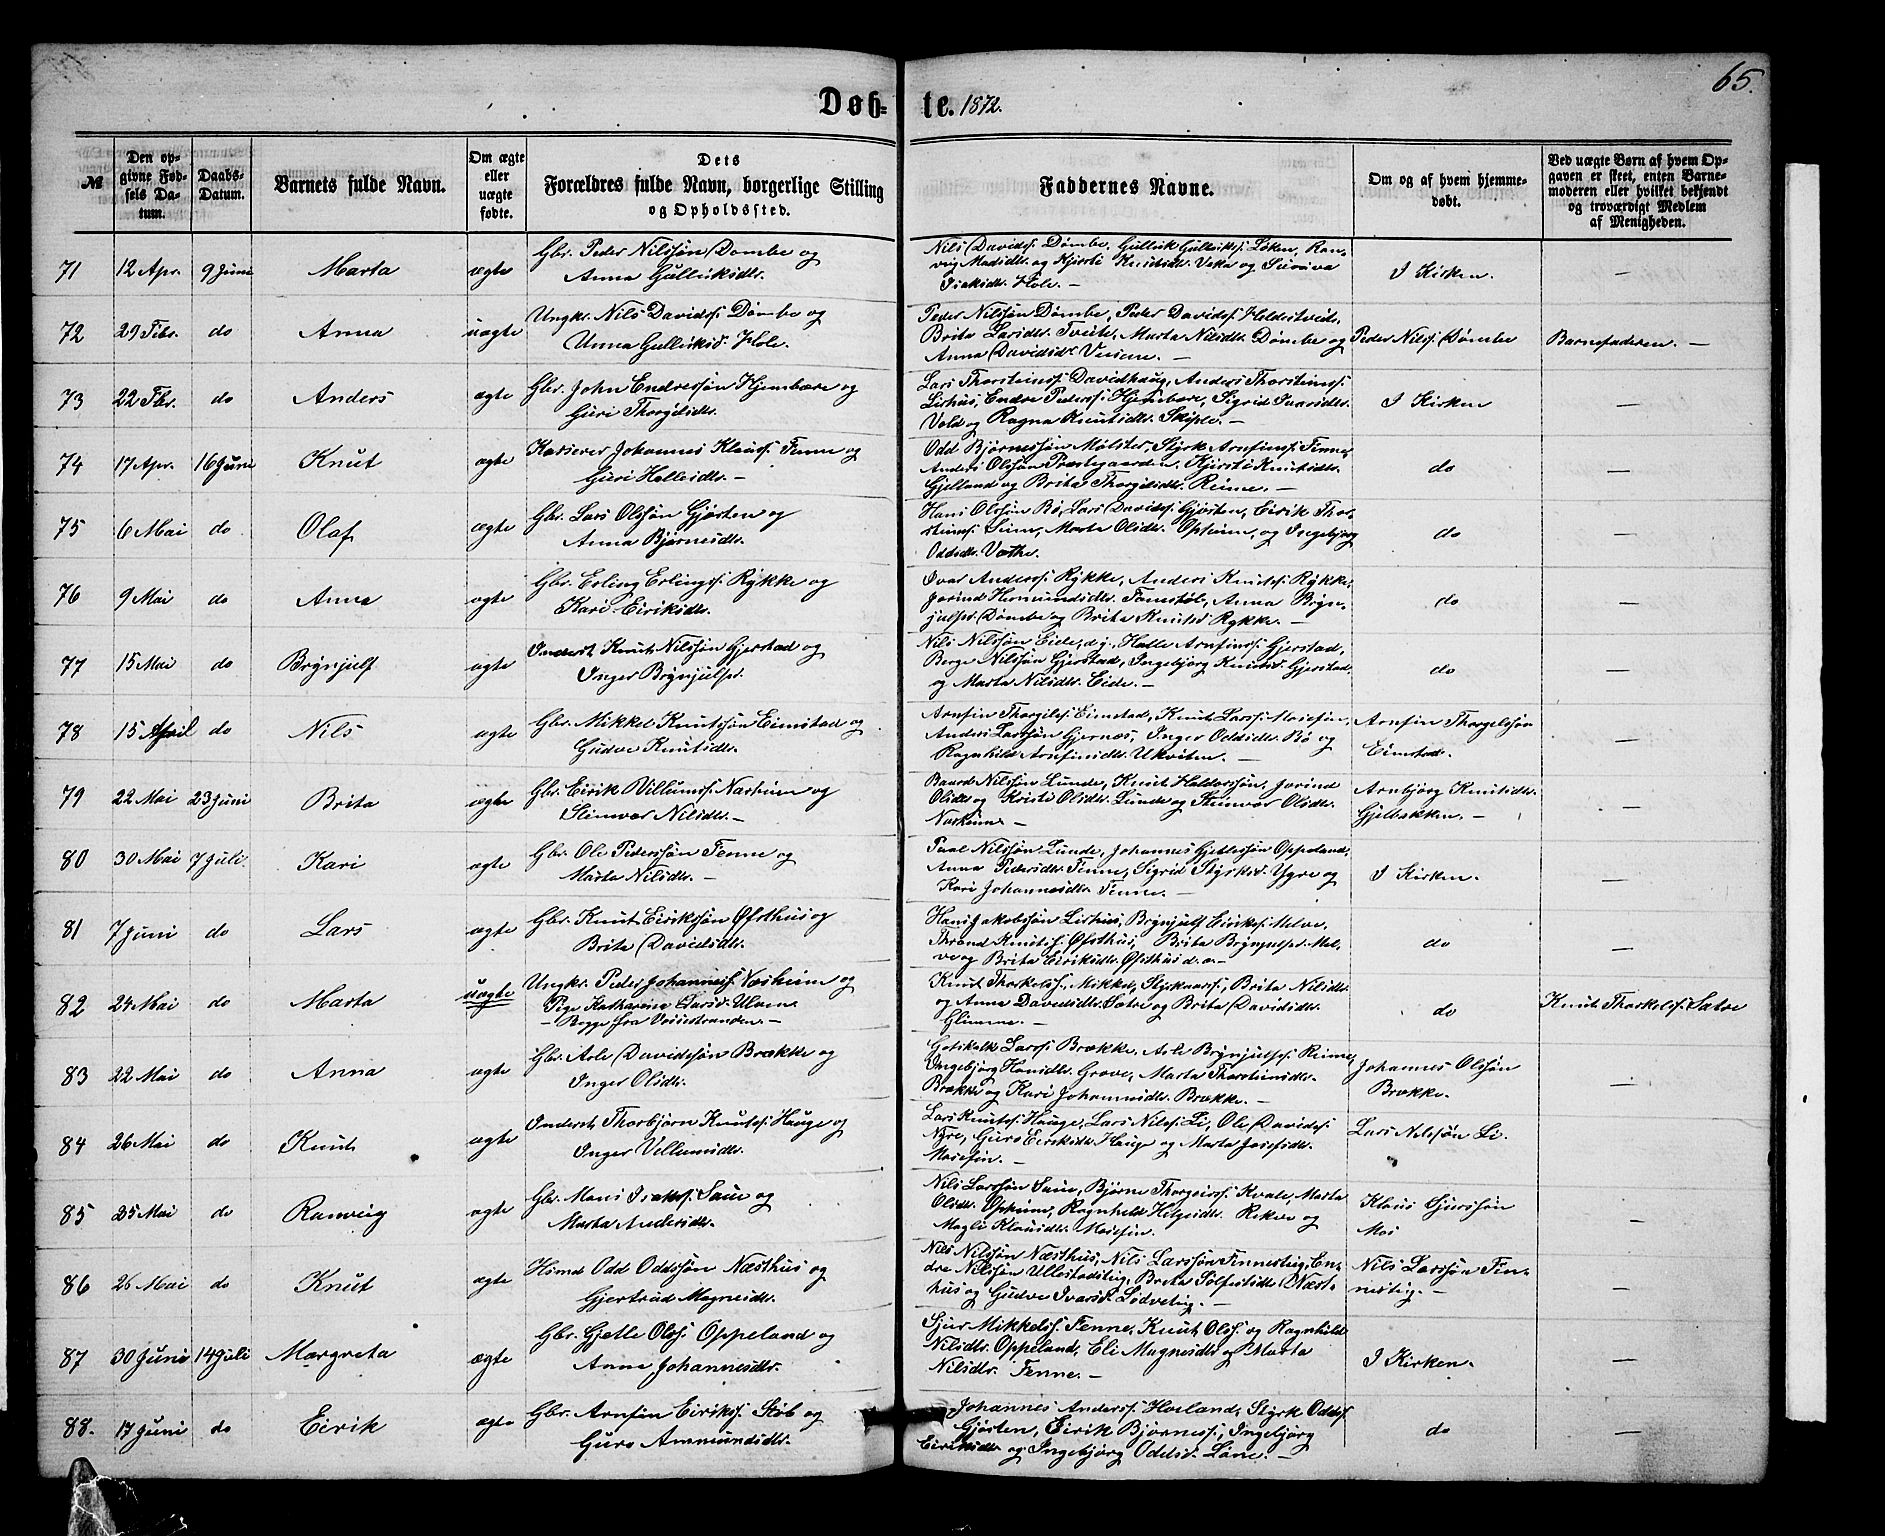 65.
Døb- te. 1872.
№
Den opgivne Fødsels Datum.
Daabs-Datum.
Barnets fulde Navn.
Om ægte eller uægte fødte.
Dets Forældres fulde Navn, borgerlige Stilling og Opholdssted.
Faddernes Navne.
Om og af hvem hjemmedøbt.
Ved uægte Børn af hvem Opgaven er skeet, enten Barnemoderen eller hvilket bekjendt og troværdigt Medlem af Menigheden.
71 12 Apr. 9 Juni Marta ægte
Gbr. Peder Nilssøn Dømbe og
Anna Gulliksdtr.
Nils Davids. Dømbe, Gullik Gulliks. Løken, Ran-
vig Madsdtr. og Kjersti Knutsdtr. Væka og Sunniva
Isaksdtr. Hole. —
I Kirken. —
72 29 Febr. do Anna uægte
Ungkr. Nils Davids. Dømbe og
Anna Gulliksd. Hole.
Peder Nilssøn Dømbe, Peder Davids. Holdestveit,
Brita Larsdtr. Tveite, Marta Nilsdtr. Dømbe og
Anna Davidsdr. —
Peder Nils. Dømbe
Barnefaderen. —
73 22 Febr. do Anders ægte
Gbr. John Endressøn Hjembære og
Guri Thorgilsdtr.
Lars Thorsteins. Davidhaug, Anders Thorsteins.
Lirhus, Endre Peders. Hjembære, Sigrid Ivarsdtr.
Vold og Ragna Knutsdtr. Skiple. —
I Kirken —
74 17 Apr. 16 Juni Knut ægte
Johannes Klaus. Finne og
Guri Hellesdtr. —
Odd Bjørnessøn Mølster, Styrk Arnfins. Finne,
Anders Olssøn Præstegaarden, Kjersti Knutsdtr.
Gjelland og Brita Thorgilsdtr. Reime. —
do —
75 6 Mai do Olaf ægte
Gbr. Lars Olssøn Gjøsten og
Anna Bjørnesdtr.
Hans Olssøn Bø, Lars Davids. Gjøsten, Eirik Thor-
steins. Marta Olsdtr. Opheim, og Ingebjørg
Oddsdtr. Væthe.
do —
76 9 Mai do Anna ægte
Gbr. Erling Erlings. Rykke og
Kari Eiriksdtr.
Ivar Anders. Rykke, Anders Knuts. Rykke,
Jorind Hermundsdtr. Anna Bryn-
julfsd. Dømbe og Brita Knutsd. Rykke. —
do —
77 15 Mai do Brynjulf ægte
Inderst Knut Nilssøn Gjerstad og
Inger Brynjulfsd.
Nils Nilssøn Eide, d.y., Halle Arnfins. Gjerstad,
Børge Nilssøn Gjerstad, Ingebjørg Knutsd. Gjerstad,
og Marta Nilsdtr. Eide. —
do —
78 15 April do Nils ægte
Gbr. Mikkel Knutssøn Eimstad og
Gudve Knutsdtr.
Arnfin Thorgils. Eimstad, Knut Lars. Mosefin,
Anders Larssøn Gjernes, Inger Oddsdtr. Bø og
Ragnhild Arnfinsdtr. Ukviten. —
Arnfin Thorgelssøn
Eimstad. —
79 22 Mai 23 Juni Brita ægte
Gbr. Eirik Villums. Nasheim og
Steinvor Nilsdtr. —
Baard Nilssøn Lunde, Knut Haldorssøn, Jorind
Olsdtr og Kristi Olsdtr. Lunde og Steinvor Olsdtr.
Nasheim —
Arnbjørg Knutsdtr.
Gjelbakken. — —
80 30 Mai 7 Juli. Kari ægte
Gbr. Ole Pederssøn Finne og
Marta Nilsdtr. —
Paal Nilssøn Lunde, Johannes Gjetlessøn Oppeland,
Anna Pedersdtr. Finne, Sigrid Styrksd. Ygre og
Kari Johannesdtr. Finne. —
I Kirken. —
81 7 Juni do Lars ægte
Gbr. Knut Eirikssøn Øfsthus og
Brita Davidsdtr.
Hans Jakobssøn Lirhus, Brynjulf Eiriks. Melve,
Thrond Knuts. Øfsthus, Brita Brynjulfsd. Mel-
ve og Brita Eiriksdtr. Øfsthus d.æ. —
do —
82 24 Mai do Marta uægte
Ungkr. Peder Johannes. Næsheim og
Pige Katharina Larsd.
— Begge fra Vossestranden. —
Knut Thorkels., Mikkel Styrkaars., Brita Nilsdtr.
og Anna Davidsdtr. Sætre og Brita Davidsdtr.
Glimme. —
do
Knut Thorkels. Sætre
83 22 Mai do Anna ægte
Gbr. Arle Davidssøn Brække og
Inger Olsdtr.
Gotskalk Lars. Brække, Arle Brynjulfs. Reime,
Ingebjørg Hansdtr. Grove, Marta Thorsteinsdtr.
Brække og Kari Johannesdtr. Brække. —
Johannes Olssøn
Brække. —
84 26 Mai do Knut ægte
Inderst Thorbjørn Knuts. Hauge og
Inger Villumsdtr.
Lars Knuts. Hauge, Lars Nils. Li, Ole Davids.
Nyre, Guro Eiriksdtr. Hauge og Marta Josefsdtr.
Mosefin. —
Lars Nilssøn Li. —
85 25 Mai do Ranveig ægte
Gbr. Mons Isaks. Saue og
Marta Andersdtr.
Nils Larssøn Saue, Bjørne Thorgeirs. Kvale, Marta
Olsdtr. Opheim, Ragnhild Helgesdtr. Rekve og
Magli Klausdtr. Mosefin. —
Klaus Sjurssøn
Mos —
86 26 Mai do Knut ægte
Hsmd Odd Oddssøn Næsthus og
Gjertrud Magnesdtr.
Nils Nilssøn Næsthus, Nils Larssøn Finnestig, En-
dre Nilssøn Ullestadstig, Brita Sølfestsdtr. Næst-
hus og Gudve Ivarsd. Lødvetig. —
Nils Larssøn Fin-
nestig. — —
87 30 Juni 14 Juli Margreta ægte
Gbr. Gjetle Ols. Oppeland og
Anna Johannesdtr.
Sjur Mikkels. Finne, Knut Ols. og Ragnhild
Nilsdtr. Oppeland, Eli Magnesdtr og Marta
Nilsdtr. Finne. —
I Kirken. —
88. 17 Juni do Eirik ægte
Gbr. Arnfin Eiriks. Støb og
Guro Ammundsdtr.
Johannes Anders. Horland, Styrk Odds.
Gjøsten, Eirik Bjørnes., Ingebjørg
Eiriksdtr og Ingebjørg Oddsd. Løne. —
do —